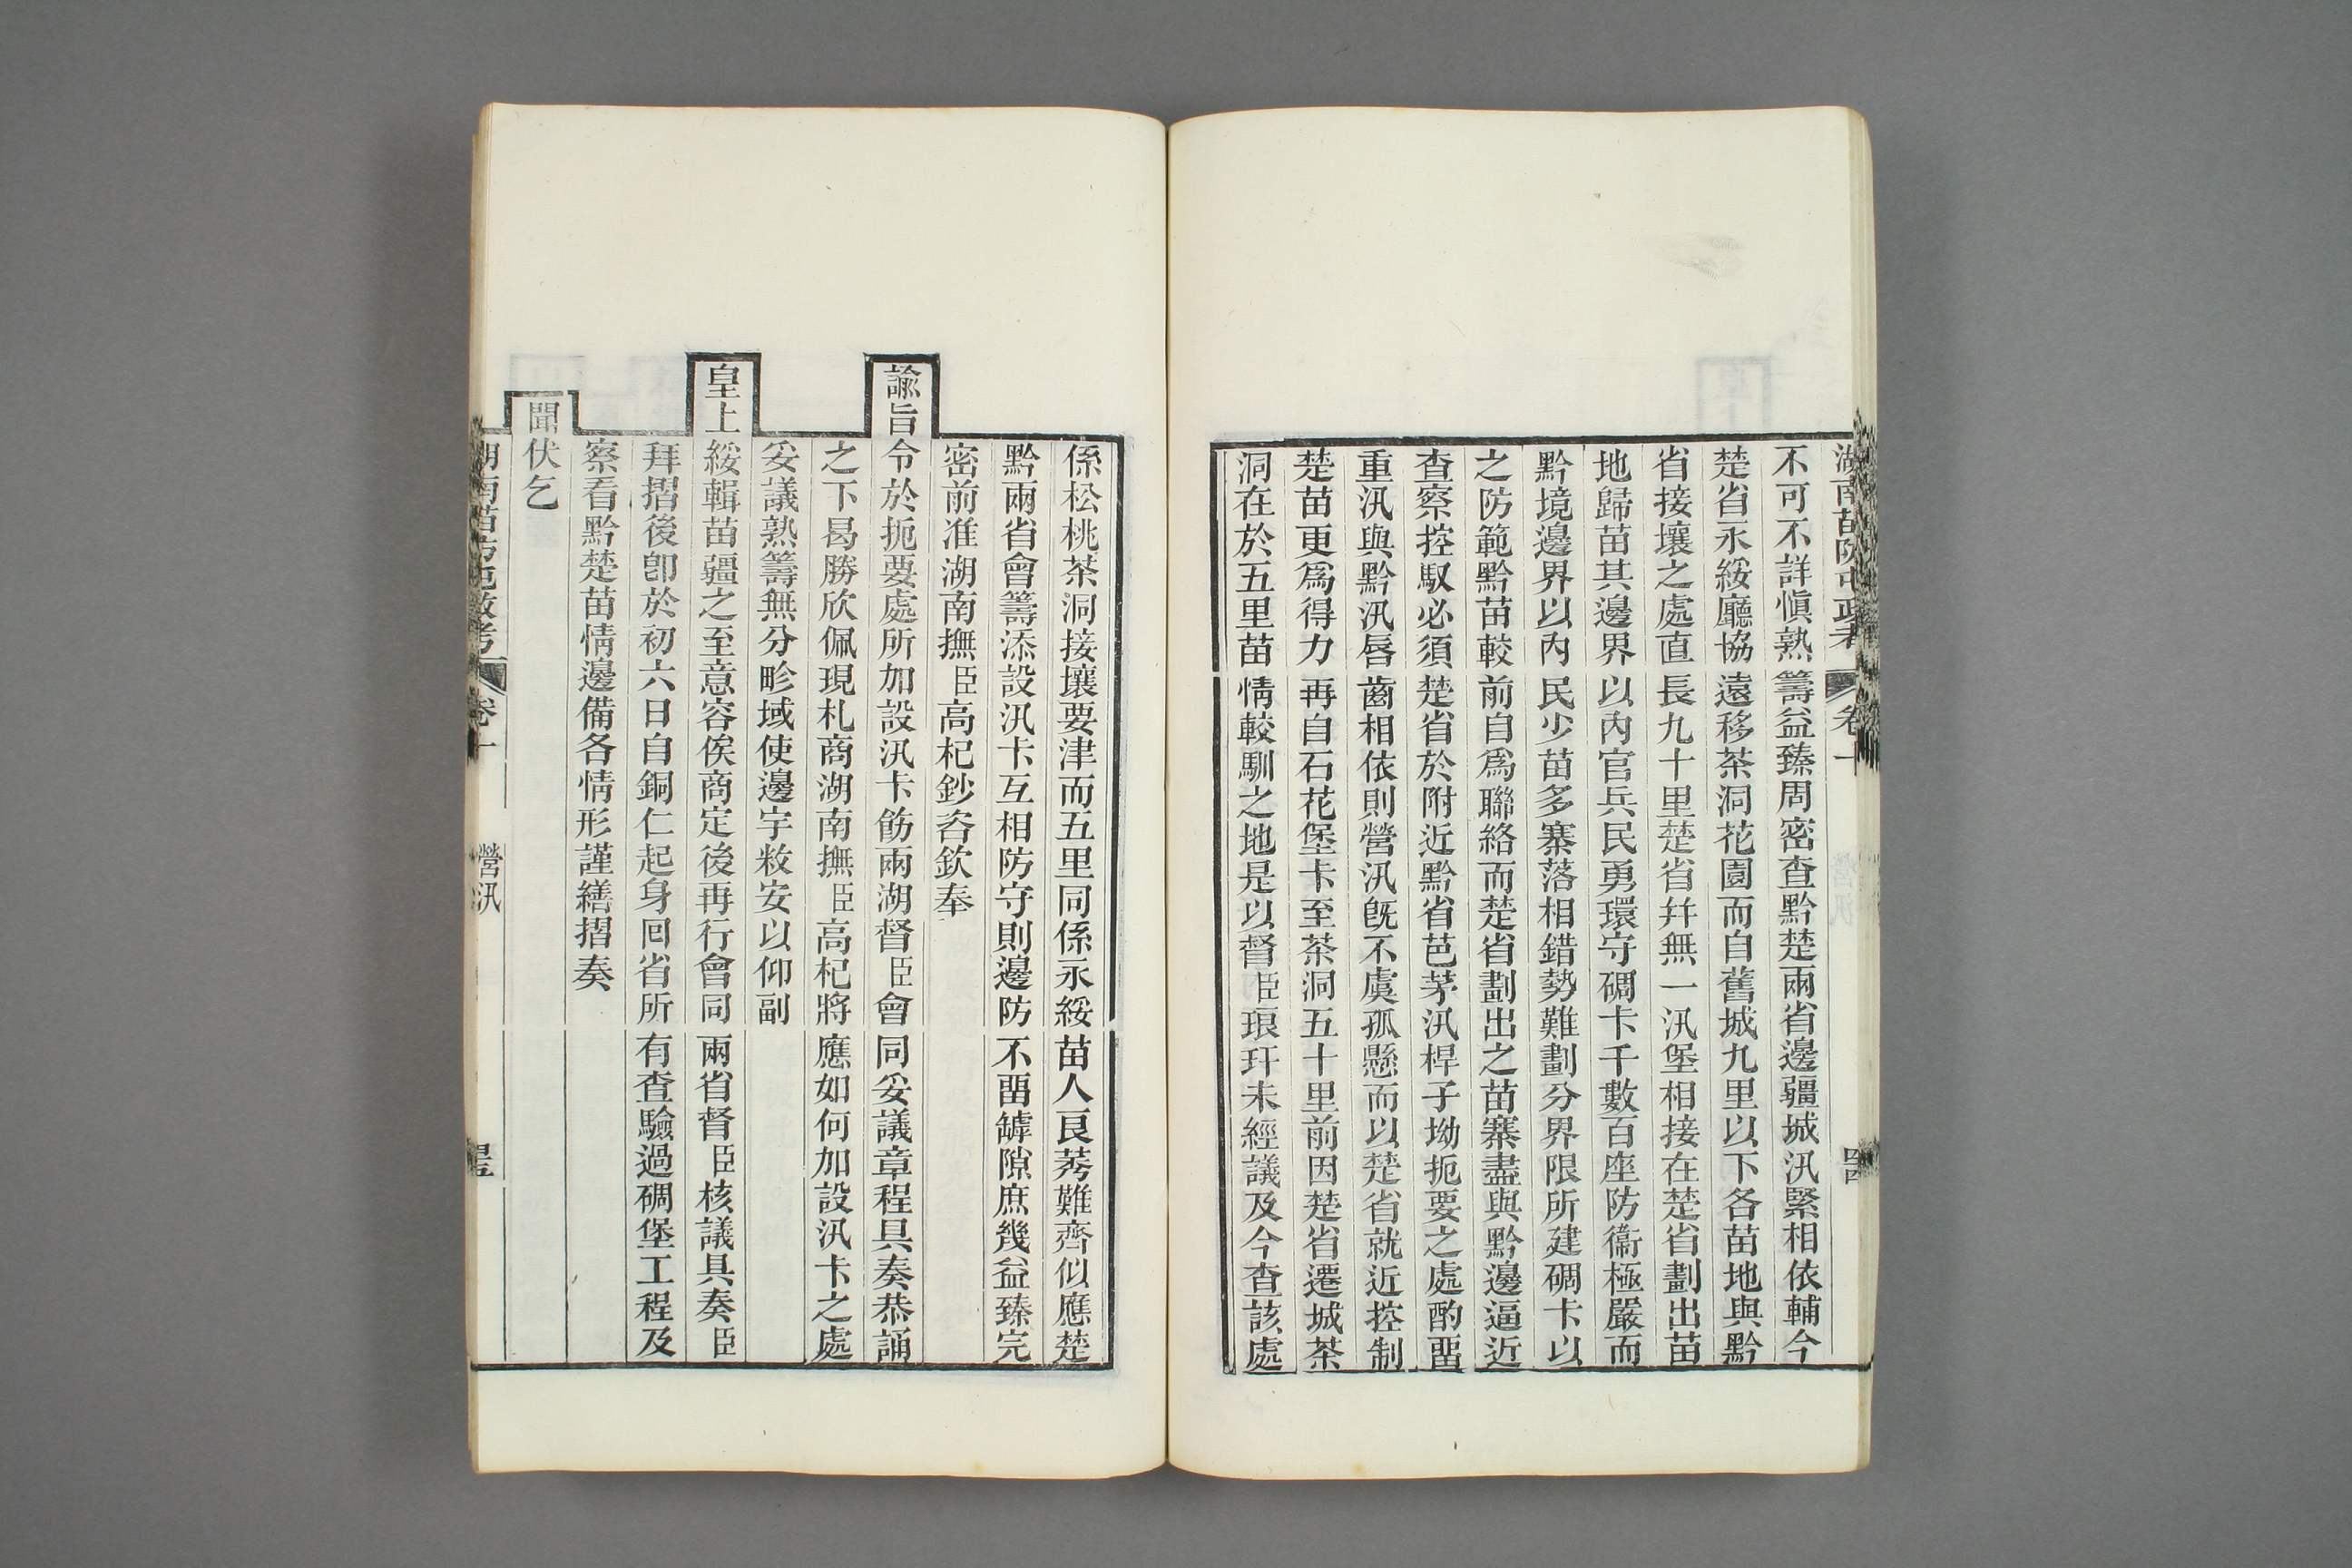 湖南苗防屯政考 卷十 四四
不可不詳愼熟籌益臻周密查黔楚兩省邊疆城汛緊相依輔今
楚省永綏廳協遠移茶洞花園而自舊城九里以下各苗地與黔
省接壤之處直長九十里楚省幷無一汛堡相接在楚省劃出苗
地歸苗其邊界以內官兵民勇環守碉卡千數百座防衞極嚴而
黔境邊界以內民少苗多寨落相錯勢難劃分界限所建碉卡以
之防範黔苗較前自爲聯絡而楚省劃出之苗寨盡與黔邊逼近
查察控馭必須楚省於附近黔省芭茅汛桿子坳扼要之處酌畱
重汛與黔汛唇齒相依則營汛旣不虞孤懸而以楚省就近控制
楚苗更爲得力再自石花堡卡至茶洞五十里前因楚省遷城茶
洞在於五里苗情較馴之地是以督臣琅玕未經議及今查該處
係松桃茶洞接壤要津而五里同係永綏苗人良莠難齊似應楚
黔兩省會籌添設汛卡互相防守則邊防不畱罅隙庶幾益臻完
密前准湖南撫臣高杞鈔咨欽奉
諭旨令於扼要處所加設汛卡飭兩湖督臣會同妥議章程具奏恭誦
之下曷勝欣佩現札商湖南撫臣高杞將應如何加設汛卡之處
妥議熟籌無分畛域使邊宇敉安以仰副
皇上綏輯苗疆之至意容俟商定後再行會同兩省督臣核議具奏臣
拜摺後卽於初六日自銅仁起身回省所有查驗過碉堡工程及
察看黔楚苗情邊備各情形謹繕摺奏
聞伏乞
湖南苗防屯政考 卷十 營汛